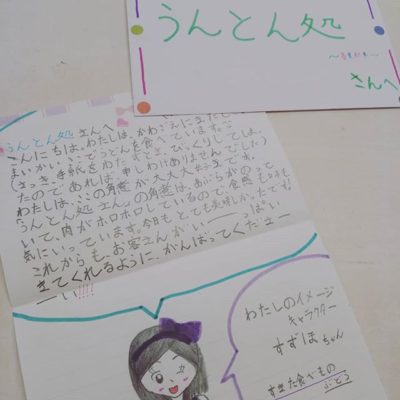 うんとん処
さんへ
うんとん処 さんへ
こんにちは。わたしは、かわ
よいかい、ここでうどんを食べています。
(さっき、手紙をわたすとき、びっくりしては
たのであれば、申しわけありませんでした)
わたしは、ここの角煮が大大大好きです。
うんとん処さんの角煮は、あぶらがのって
いて、肉がホロホロしているので食感
気にいっています。今日もとても美味しかったです!
これからも、お客さんがいーっぱい
きてくれるように、がんばってくださー
ーい!!!!
わたしのイメージ
キャラクター
すずほちゃん
すきな食べもの
ぶどう